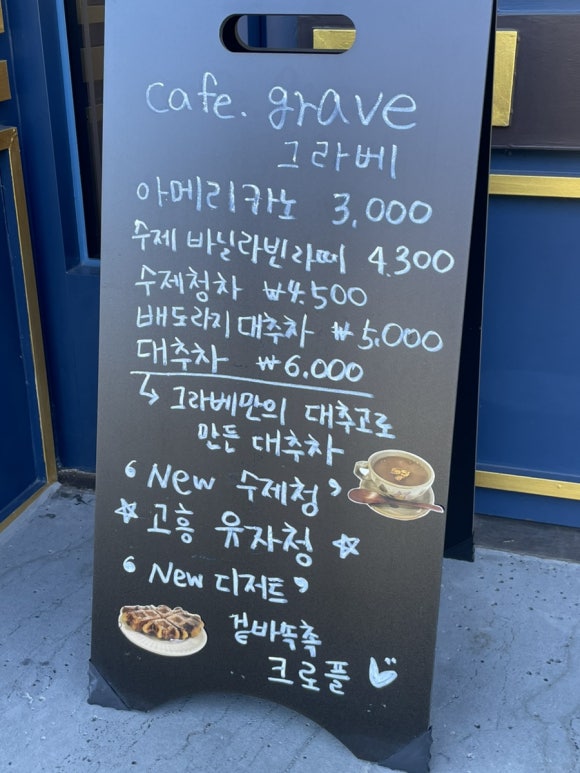 cafe. grave
그라베
아메리카노 3,000
수제 바닐라빈라떼 4.300
수제청차 ₩4.500
배도라지대추차 ₩5.000
대추차 ₩6.000
↳ 그라베만의 대추고로
만든 대추차
“ New 수제청 ”
☆ 고흥 유자청 ☆
“ New 디저트 ”
겉바속촉
크로플 ♡